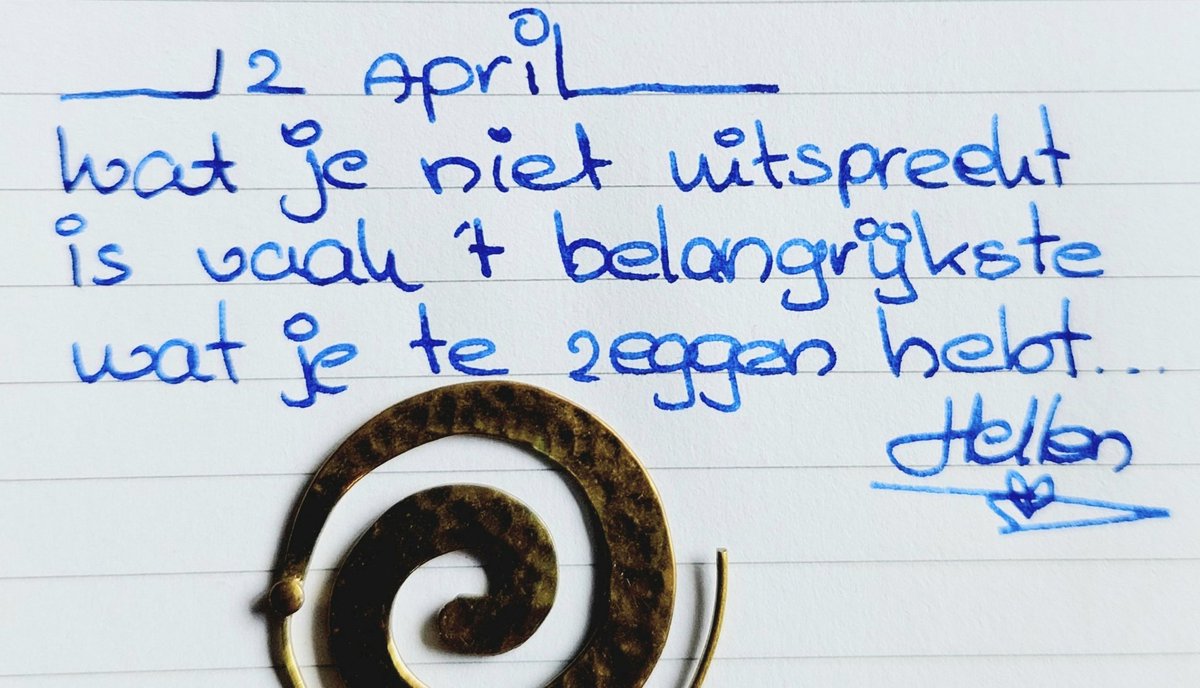 12 April
wat je niet uitspreekt
is vaak 't belangrijkste
wat je te zeggen hebt...
Hellen